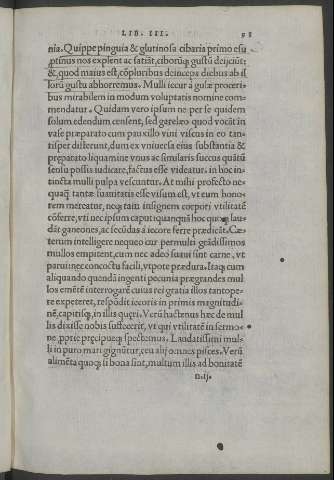 LIB. III.
nia. Quippe pinguia & glutinosa cibaria primo esu
ꝓtinus nos explent ac satiāt, ciborūq; gustū deijciūt:
&, quod maius est, cōpluribus deinceps diebus ab il
lorū gustu abhorremus. Mulli iecur à gulæ proceri-
bus mirabilem in modum voluptatis nomine com-
mendatur. Quidam vero ipsum ne per se quidem
solum edendum censent, sed gareleo quod vocāt in
vase præparato cum pauxillo vini viscus in eo tan-
tisper differunt, dum ex vniuersa eius substantia &
preparato liquamine vnus ac similaris succus quātū
sensu possis iudicare, factus esse videatur. in hoc in-
tincta mulli pulpa vescuntur. At mihi profecto ne-
quaq̄ tantæ suauitatis esse visum est, vt eum hono-
rem mereatur, neq; tātū insignem corpori vtilitatē
cōferre, vti nec ipsum caput quanquā hoc quoq; lau-
dāt ganeones, ac secūdas à iecore ferre prædicāt. Cæ-
terum intelligere nequeo cur permulti grādissimos
mullos empitent, cum nec adeo suaui sint carne, vt
parui: nec concoctu facili, vtpote prædura. Itaq; cum
aliquando quendā ingenti pecunia prægrandes mul
los emētē interrogarē cuius rei gratia illos tantope-
re expeteret, respōdit iecoris in primis magnitudi-
nē, capitisq; in illis quęri. Verū hactenus hæc de mul
lis dixisse nobis suffecerit, vt qui vtilitatē in sermo-
ne ꝓprie pręcipueq; spectemus. Laudatissimi mul-
li in puro mari gignūtur, ceu alij omnes pisces. Verū
alimēta quoq; si bona sint, multum illis ad bonitatē